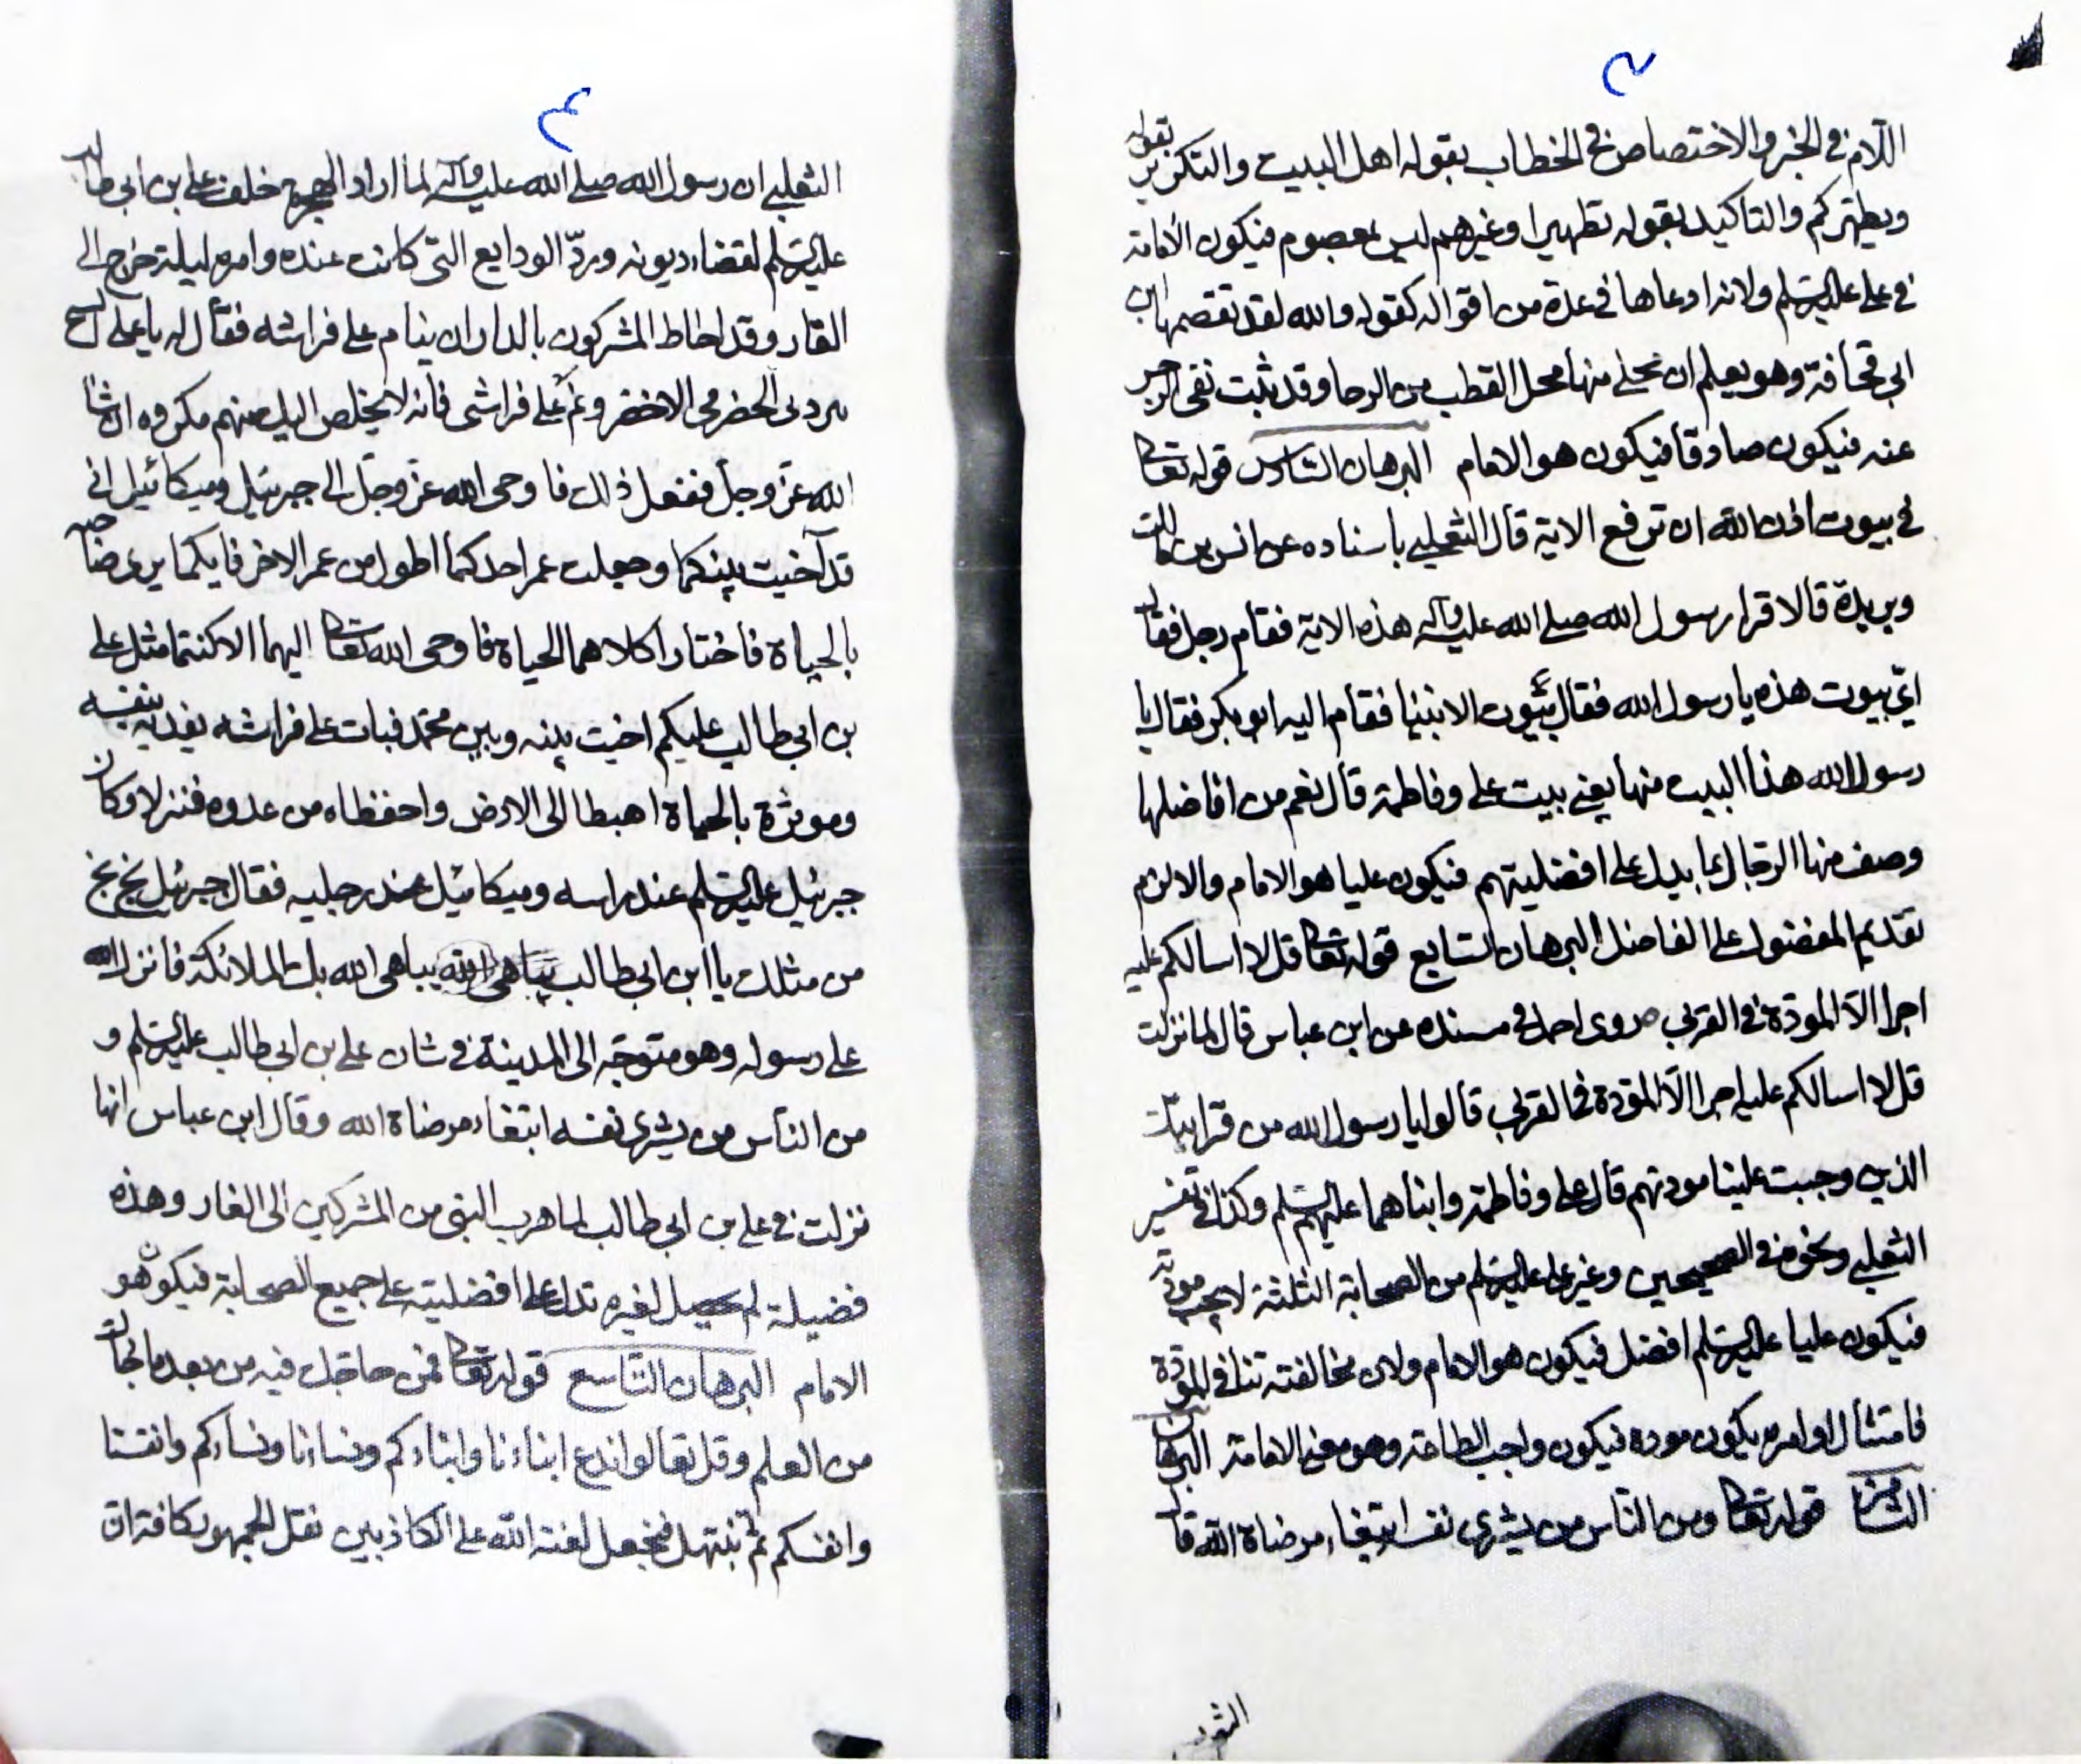 ٢
اللام في الخبر والاختصاص في الخطاب بقوله اهل البيت والتكرير بقوله
ويطهركم والتاكيد بقوله تطهيرا وغيرهم ليس بمعصوم فيكون الامامة
في علي عليه السلم ولانه ادعاها في عدة من اقواله كقوله والله لقد تقمصها ابن
ابي قحافة وهو يعلم ان محلي منها محل القطب من الرحا وقد ثبت نفي الرجس
عنه فيكون صادقا فيكون هو الامام البرهان السادس قوله تعالى
في بيوت اذن الله ان ترفع الاية قال الثعلبي باسناده عن انس بن مالك
وبريدة قالا قرا رسول الله صلى الله عليه وآله هذه الاية فقام رجل فقال
اي بيوت هذه يا رسول الله فقال بيوت الانبيا فقام اليه ابو بكر فقال يا
رسول الله هذا البيت منها يعني بيت علي وفاطمة قال نعم من افاضلها
وصف منها الرجال بما يدل على افضليتهم فيكون عليا هو الامام والا لزم
تقديم المفضول على الفاضل البرهان السابع قوله تعالى قل لا اسالكم عليه
اجرا الا المودة في القربى روى احمد في مسنده عن ابن عباس قال لما نزلت
قل لا اسالكم عليه اجرا الا المودة في القربى قالوا يا رسول الله من قرابتك
الذين وجبت علينا مودتهم قال علي وفاطمة وابناهما عليهم السلم وكذا في تفسير
الثعلبي ونحوه في الصحيحين وغير علي عليه السلم من الصحابة الثلثة لا يجب مودته
فيكون عليا عليه السلم افضل فيكون هو الامام ولان مخالفته تنافي المودة
فامتثال اوامره يكون مودة فيكون واجب الطاعة وهو معنى الامامة البرهان
الثامن قوله تعالى ومن الناس من يشري نفسه ابتغاء مرضاة الله قال
الثعلبي
٣
الثعلبي ان رسول الله صلى الله عليه وآله لما اراد الهجرة خلف علي بن ابي طالب
عليه السلم لقضاء ديونه وردّ الودايع التي كانت عنده وامره ليلة خرج الى
الغار وقد احاط المشركون بالدار ان ينام على فراشه فقال له يا علي اتشح
ببردتي الحضرمي الاخضر ونم على فراشي فانه لا يخلص اليك منهم مكروه ان شا
الله عز وجل ففعل ذلك فاوحى الله عز وجل الى جبرئيل وميكائيل اني
قد آخيت بينكما وجعلت عمر احدكما اطول من عمر الاخر فايكما يوثر صاحبه
بالحياة فاختارا كلاهما الحياة فاوحى الله تعالى اليهما الا كنتما مثل علي
بن ابي طالب عليكم اخيت بينه وبين محمد فبات على فراشه يفديه بنفسه
وموثرة بالحياة اهبطا الى الارض واحفظاه من عدوه فنزلا وكان
جبرئيل عليه السلم عند راسه وميكائيل عند رجليه فقال جبرئيل بخ بخ
من مثلك يا ابن ابي طالب يباهي الله يباهي الله بك الملائكة فانزل الله
على رسوله وهو متوجه الى المدينة في شان علي بن ابي طالب عليه السلم و
من الناس من يشري نفسه ابتغاء مرضاة الله وقال ابن عباس انها
نزلت في علي بن ابي طالب لما هرب النبي من المشركين الى الغار وهذه
فضيلة لم يحصل لغيره تدل على افضليته على جميع الصحابة فيكون هو
الامام البرهان التاسع قوله تعالى فمن حاجك فيه من بعد ما جاك
من العلم وقل تعالوا ندع ابناءنا وابناءكم ونساءنا ونساءكم وانفسنا
وانفسكم ثم نبتهل فنجعل لعنة الله على الكاذبين نقل الجمهور كافة ان